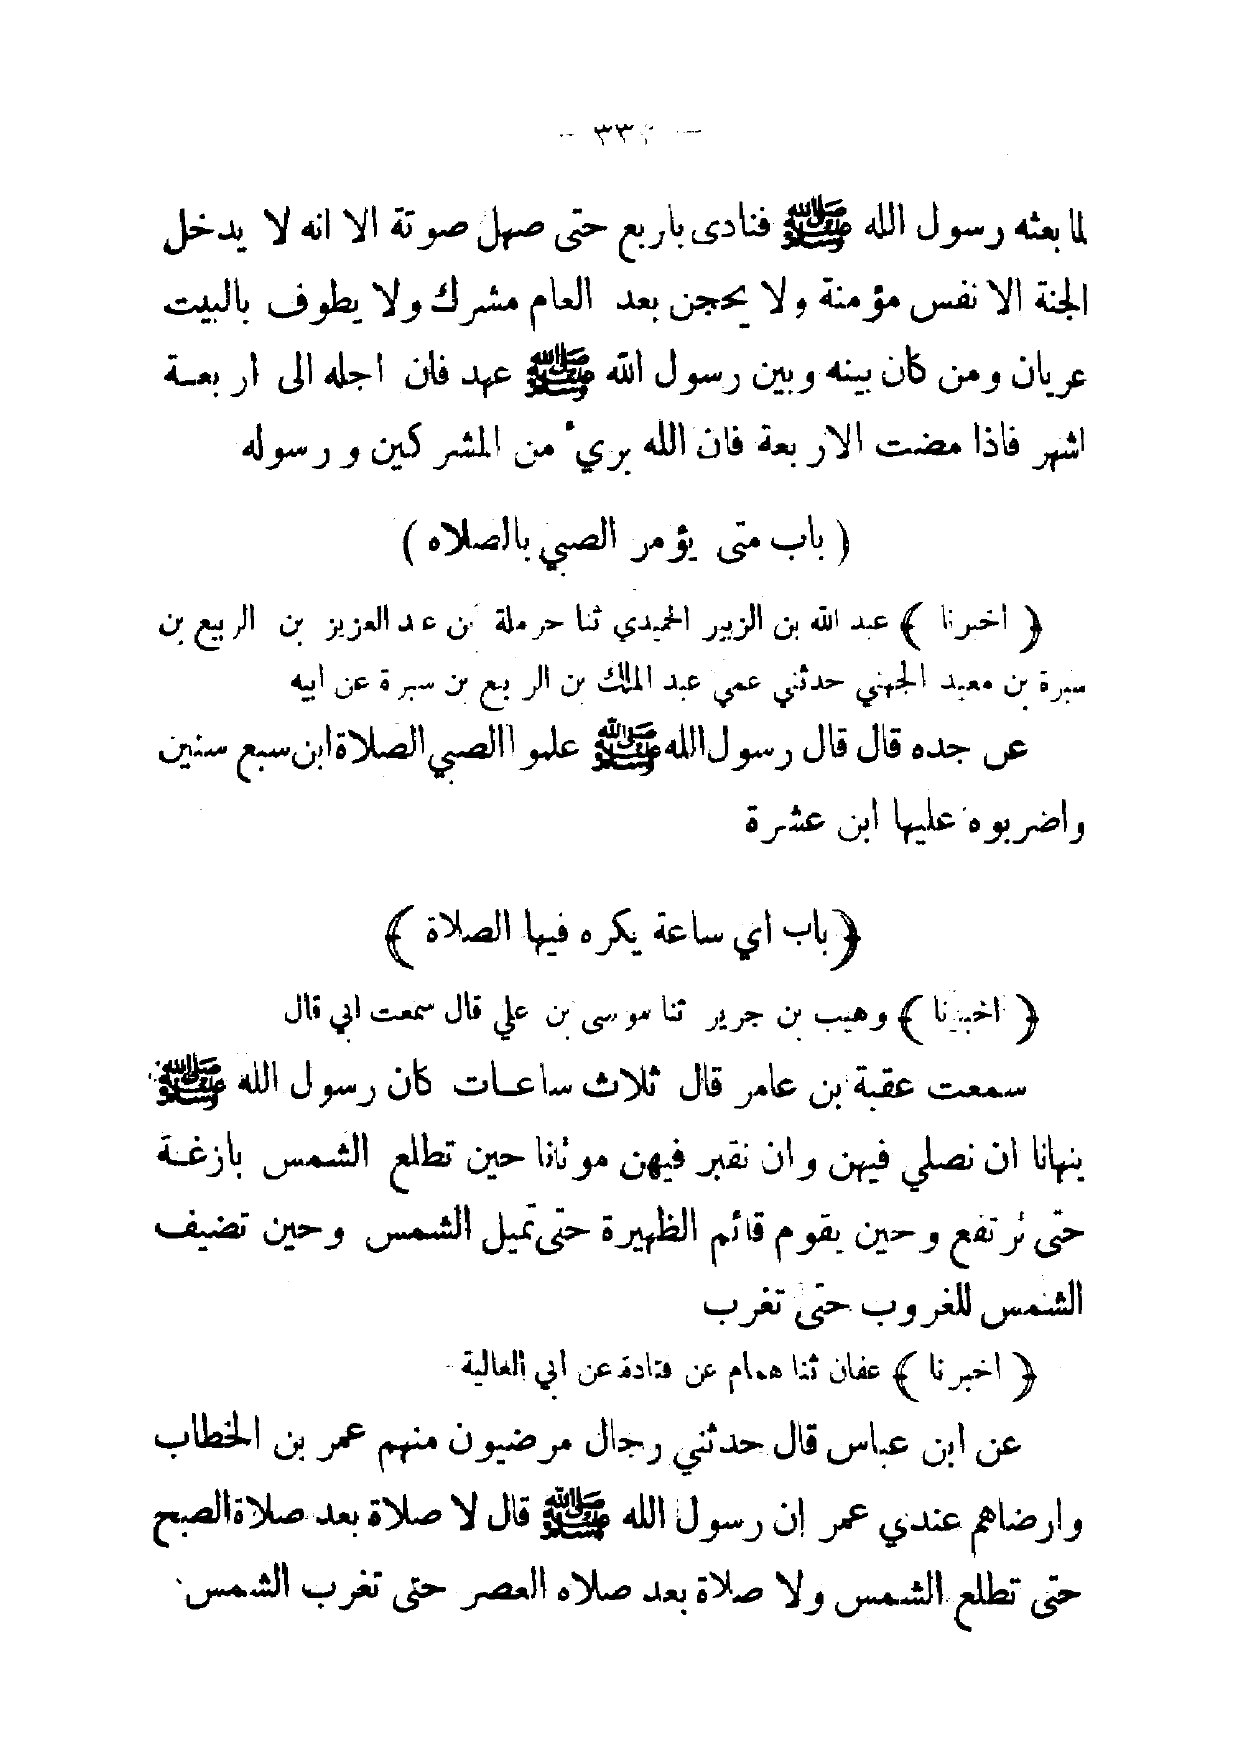 — ٣٣ —
لما بعثه رسول الله ﷺ فنادى باربع حتى صهل صوته الا انه لا يدخل
الجنة الا نفس مؤمنة ولا يحججن بعد العام مشرك ولا يطوف بالبيت
عريان ومن كان بينه وبين رسول الله ﷺ عهد فان اجله الى اربعة
اشهر فاذا مضت الاربعة فان الله بريء من المشركين ورسوله
( باب متى يؤمر الصبي بالصلاه )
﴿ اخبرنا ﴾ عبد الله بن الزبير الحميدي ثنا حرملة بن عبد العزيز بن الربيع بن
سبرة بن معبد الجهني حدثني عمي عبد الملك بن الربيع بن سبرة عن ابيه
عن جده قال قال رسول الله ﷺ علموا الصبي الصلاة ابن سبع سنين
واضربوه عليها ابن عشرة
﴿ باب اي ساعة يكره فيها الصلاة ﴾
﴿ اخبرنا ﴾ وهيب بن جرير ثنا موسى بن علي قال سمعت ابي قال
سمعت عقبة بن عامر قال ثلاث ساعات كان رسول الله ﷺ
ينهانا ان نصلي فيهن وان نقبر فيهن موتانا حين تطلع الشمس بازغة
حتى ترتفع وحين يقوم قائم الظهيرة حتى تميل الشمس وحين تضيف
الشمس للغروب حتى تغرب
﴿ اخبرنا ﴾ عفان ثنا همام عن قتادة عن ابي العالية
عن ابن عباس قال حدثني رجال مرضيون منهم عمر بن الخطاب
وارضاهم عندي عمر إن رسول الله ﷺ قال لا صلاة بعد صلاة الصبح
حتى تطلع الشمس ولا صلاة بعد صلاه العصر حتى تغرب الشمس